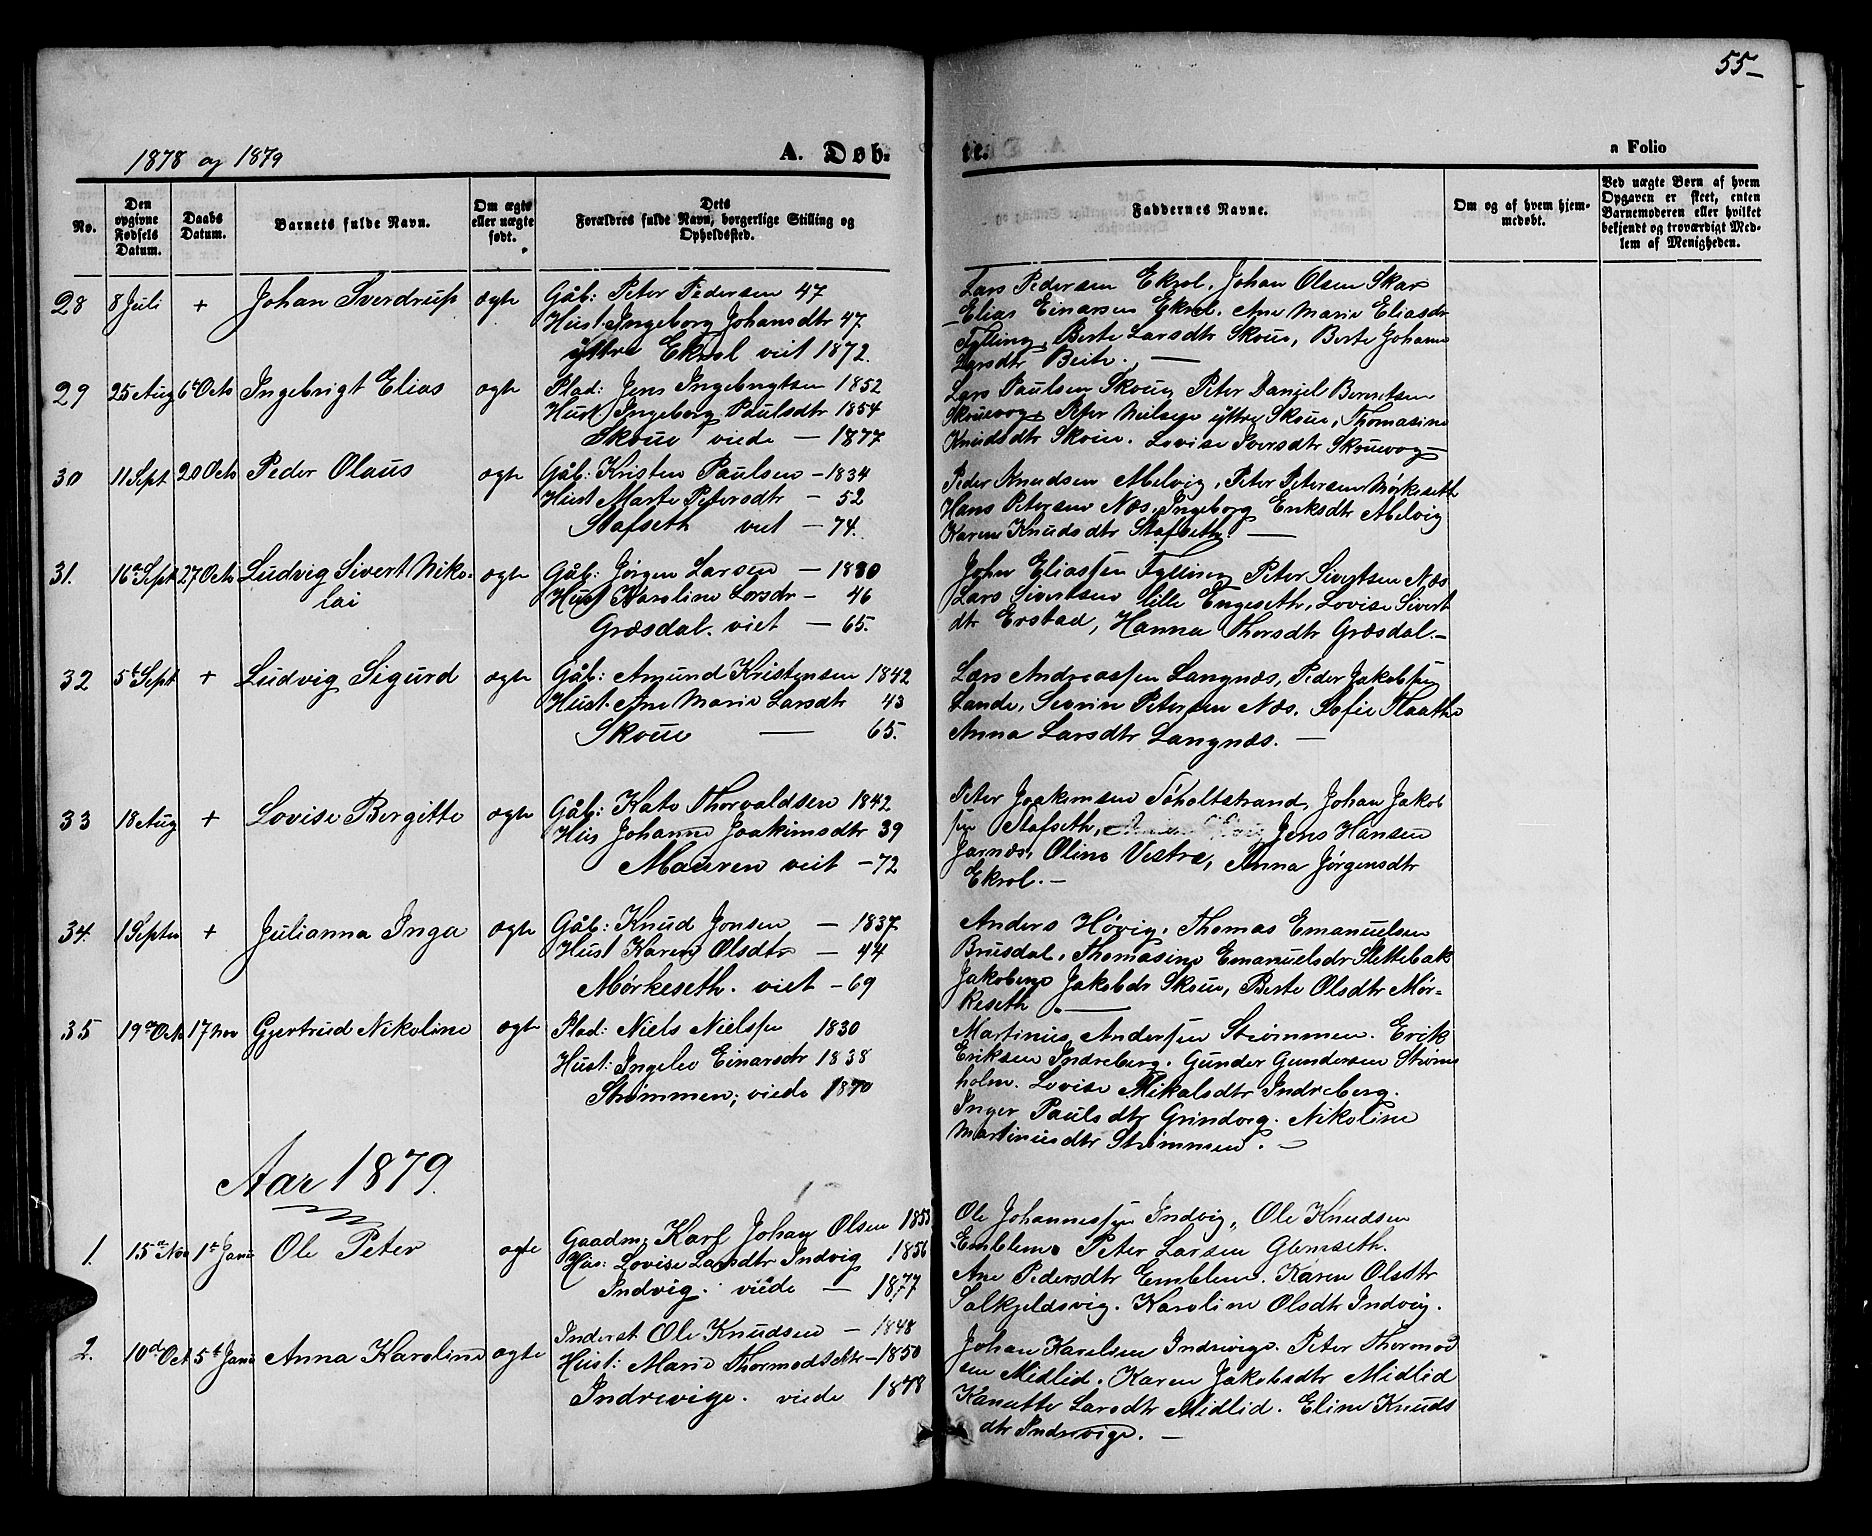 55-
1878 og 1879
A. Døb-
te.
a Folio
No.
Den opgivne Fødsels Datum.
Daabs Datum.
Barnets fulde Navn.
Om ægte eller uægte født.
Dets Forældres fulde Navn, borgerlige Stilling og Opholdssted.
Faddernes Navne.
Om og af hvem hjemmedøbt.
Ved uægte Børn af hvem Opgaven er skeet, enten Barnemoderen eller hvilket bekjendt og troværdigt Medlem af Menigheden.
28 8 Juli + Johan Sverdrup ægte Gåb: Peter Pedersen 47
Hust. Ingeborg Johansdtr 47.
yttre Ekrol viet 1872.
Lars Pedersen Ekrol, Johan Olsen Skar
Elias Einarsen Ekrol. Ane Marie Eliasdr
Fylling, Berte Larsdtr Skoue, Berte Johanne
Larsdtr Beite. —
29 25 Aug 6 Octo Ingebrigt Elias ægte Plad: Jens Ingebrigtsen 1852
Hust Ingeborg Paulsdtr 1854
Skoue viede — 1877
Lars Paulsen Skoug Peter Daniel Berntsen
Skouevog, Peter Nielsen yttre Skoue, Thomasine
Knudsdtr Skoue. Lovise Iversdtr Skouvog —
30 11 Sept 20 Octo Peder Olaus ægte Gåb: Kristen Paulsen — 1834
Hust Marte Petersdtr — 52
Stafseth viet — 74.
Peder Knudsen Melvig, Peter Petersen Mørkeseth
Hans Petersen Næs, Ingeborg Eriksdtr Melvig
Karen Knudsdtr Stafseth. —
31. 16 Sept 27 Octo Ludvig Sivert Niko- ægte Gåb: Jørgen Larsen — 1830
lai Hust Karoline Larsdr — 46
Græsdal. viet — 65.
John Eliassen Fylling Peter Sivertsen Næs
Lars Sivertsen lille Engeseth, Lovise Sivert
dtr Erstad, Hanna Thorsdtr Græsdal. —
32 5t Sept + Ludvig Sigurd ægte Gåb: Amund Kristensen 1842
Hust. Ane Marie Larsdtr 43
Skoue — 65.
Lars Andreassen Langnæs, Peder Jakobsen
Lande, Severin Petersen Næs. Sofie Flaathe
Anna Larsdtr Langnæs. —
33 18 Aug + Lovise Bergitte ægte Gåb: Kato Thorvaldsen 1842
Hus Johanne Joakimsdtr 39
Mauren viet — 72
Peter Joakimsen Søholtstrand, Johan Jakob
sen Stafseth, Jens Hansen
Jarnæs, Oline Vestre, Anna Jørgensdtr
Ekrol. —
34. 1 Septer + Julianna Inga ægte Gåb: Knud Jonsen — 1837
Hust Karen Olsdtr — 44
Mørkeseth. viet — 69
Anders Høvig. Thomas Emanuelsen
Brusdal, Thomasine Emanuelsdr Slettebak
Jakobine Jakobdr Skoue, Berte Olsdtr Mør-
keseth. —
35 19 Octo 17 Nov Gjertrud Nikoline ægte Plad: Niels Nielssen 1830
Hust: Ingelev Einarsdr 1838
Strømmen; viede 1870
Martinius Anderssen Strømmen. Erik
Eriksen Indreberg. Gunder Gundersen Strøms
holm. Lovise Mikalsdtr Indreberg.
Inger Paulsdtr Grindorg. Nikoline
Martinusdtr Strømmen. —
Aar 1879.
1. 15 Nov 1t Janu Ole Peter ægte Gaadm. Karl Johan Olsen 1853
Hus: Lovise Larsdtr Indvig 1856
Indvig. viede — 1877
Ole Johannessen Indvig, Ole Knudsen
Emblem. Peter Larsen Glemseth.
Ane Pedersdtr Emblem. Karen Olsdtr
Solkjeldsvig. Karoline Olsdtr Indvig.
2. 10d Oct 5t Janu Anna Karoline ægte Inderst Ole Knudsen — 1848
Hust: Marie Thormodsdtr — 1850
Indrevige. viede 1878
Johan Karelsen Indrevige. Peter Thormod
sen Midlid. Karen Jakobsdtr Midlid
Kanutte Larsdtr Midlid. Eline Knuds
dtr Indrevige. —